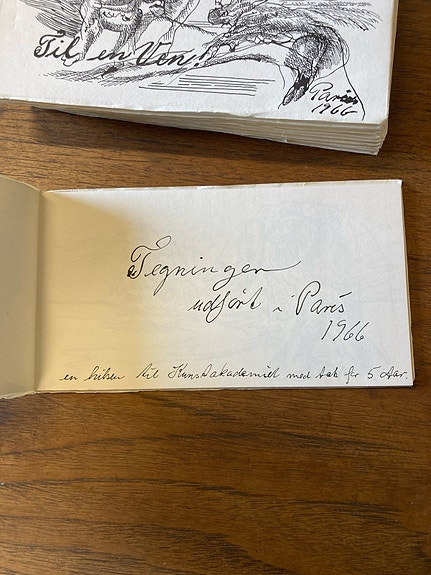 Til en Ven!
Paris
1966
Tegninger
udført i Paris
1966
en hilsen til Kunstakademiet med tak for 5 Aar.